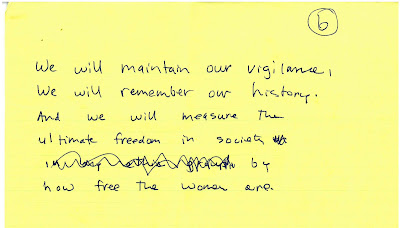 6
We will maintain our vigilance,
We will remember our history.
And we will measure the
ultimate freedom in society
by
how free the women are.